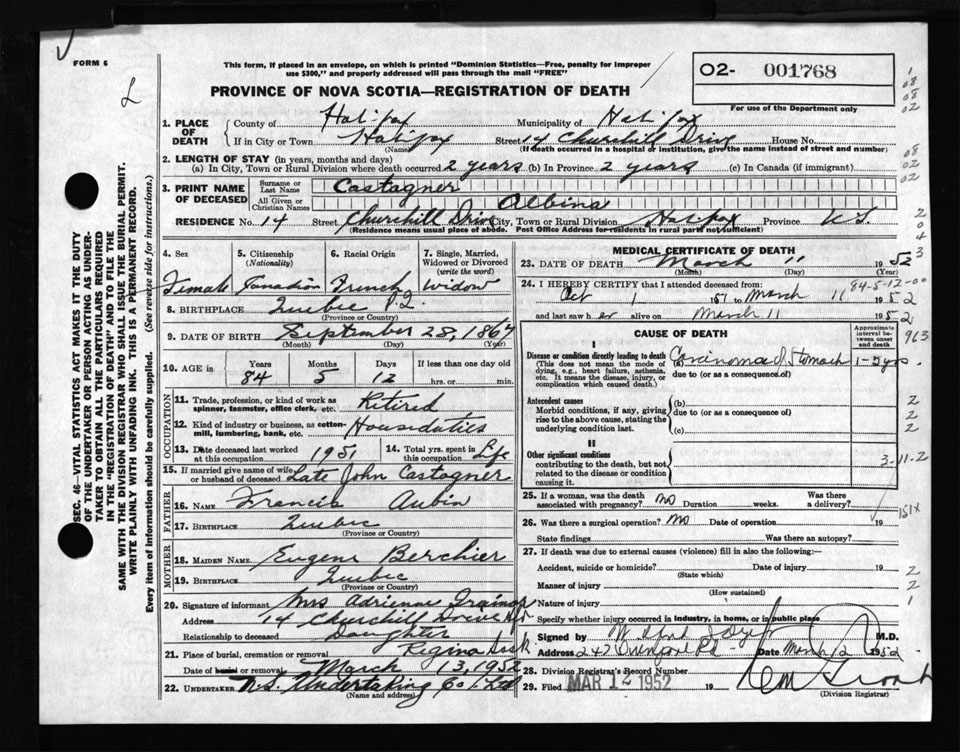 FORM 6
L
This form, if placed in an envelope, on which is printed "Dominion Statistics—Free, penalty for improper
use $300," and properly addressed will pass through the mail "FREE"
PROVINCE OF NOVA SCOTIA—REGISTRATION OF DEATH
02- 001768
For use of the Department only
1. PLACE OF DEATH
County of Halifax Municipality of Halifax
If in City or Town Halifax Street 14 Churchill Drive House No.
(Name) (If death occurred in a hospital or institution, give the name instead of street and number)
2. LENGTH OF STAY (in years, months and days)
(a) In City, Town or Rural Division where death occurred 2 years (b) In Province 2 years (c) In Canada (if immigrant)
3. PRINT NAME OF DECEASED
Surname or Last Name Castagner
All Given or Christian Names Albina
RESIDENCE No. 14 Street Churchill Drive City, Town or Rural Division Halifax Province N.S.
(Residence means usual place of abode. Post Office Address for residents in rural parts not sufficient)
4. Sex 5. Citizenship (Nationality) 6. Racial Origin 7. Single, Married, Widowed or Divorced (write the word)
Female Canadian French Widow
8. BIRTHPLACE Quebec P.Q.
(Province or Country)
9. DATE OF BIRTH September 28, 1867
(Month) (Day) (Year)
10. AGE in Years Months Days If less than one day old
84 5 12 hrs. or min.
OCCUPATION
11. Trade, profession, or kind of work as spinner, teamster, office clerk, etc. Retired
12. Kind of industry or business, as cotton-mill, lumbering, bank, etc. Houseduties
13. Date deceased last worked at this occupation 1951 14. Total yrs. spent in this occupation Life
15. If married give name of wife or husband of deceased Late John Castagner
FATHER
16. NAME Francis Aubin
17. BIRTHPLACE Quebec
(Province or Country)
MOTHER
18. MAIDEN NAME Eugene Berchier
19. BIRTHPLACE Quebec
(Province or Country)
20. Signature of informant Mrs Adrienne Trainor
Address 14 Churchill Drive
Relationship to deceased Daughter
21. Place of burial, cremation or removal Regina Sask
Date of burial or removal March 13, 1952
22. UNDERTAKER N.S. Undertaking Co. Ltd
(Name and address)
MEDICAL CERTIFICATE OF DEATH
23. DATE OF DEATH March 11 1952
(Month) (Day) (Year)
84-5-12-00
24. I HEREBY CERTIFY that I attended deceased from:
Oct 1 1951 to March 11 1952
and last saw her alive on March 11 1952
CAUSE OF DEATH
Approximate interval between onset and death
I
Disease or condition directly leading to death
(This does not mean the mode of dying, e.g., heart failure, asthenia, etc. It means the disease, injury, or complication which caused death.)
(a) Carcinoma of Stomach
due to (or as a consequence of)
Antecedent causes
Morbid conditions, if any, giving rise to the above cause, stating the underlying condition last.
(b)
due to (or as a consequence of)
(c)
II
Other significant conditions
contributing to the death, but not related to the disease or condition causing it.
3-11-2
25. If a woman, was the death associated with pregnancy? no Duration weeks. Was there a delivery?
26. Was there a surgical operation? no Date of operation 19
State findings Was there an autopsy?
27. If death was due to external causes (violence) fill in also the following:—
Accident, suicide or homicide? Date of injury 19
(State which)
Manner of injury
(How sustained)
Nature of injury
Specify whether injury occurred in industry, in home, or in public place
Signed by M.D.
Address 247 Date March 12 1952
28. Division Registrar's Record Number
29. Filed MAR 12 1952 19
(Division Registrar)
SEC. 46—VITAL STATISTICS ACT MAKES IT THE DUTY
OF THE UNDERTAKER OR PERSON ACTING AS UNDER-
TAKER TO OBTAIN ALL THE PARTICULARS REQUIRED
IN THE "REGISTRATION OF DEATH" AND TO FILE THE
SAME WITH THE DIVISION REGISTRAR WHO SHALL ISSUE THE BURIAL PERMIT.
WRITE PLAINLY WITH UNFADING INK. THIS IS A PERMANENT RECORD.
Every item of information should be carefully supplied. (See reverse side for instructions.)
1
08
08
02
08
02
02
2
0
4
3
963
2
2
2
151X
2
2
1